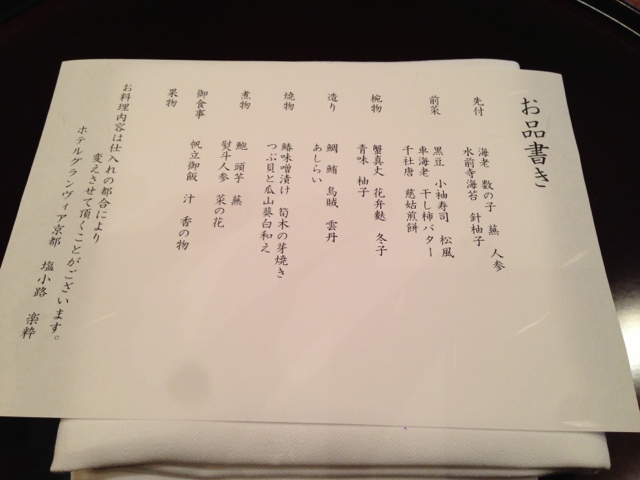 お品書き
先付
海老 数の子 蕪 人参
水前寺海苔 針柚子
前菜
黒豆 小袖寿司 松風
車海老 干し柿バター
千社唐 慈姑煎餅
椀物
蟹真丈 花弁麩 冬子
青味 柚子
造り
鯛 鮪 烏賊 雲丹
あしらい
焼物
鰆味噌漬け 筍木の芽焼き
つぶ貝と瓜山葵白和え
煮物
鮑 頭芋 蕪
熨斗人参 菜の花
御食事
帆立御飯 汁 香の物
果物
お料理内容は仕入れの都合により
変えさせて頂くことがございます。
ホテルグランヴィア京都 塩小路 楽粋